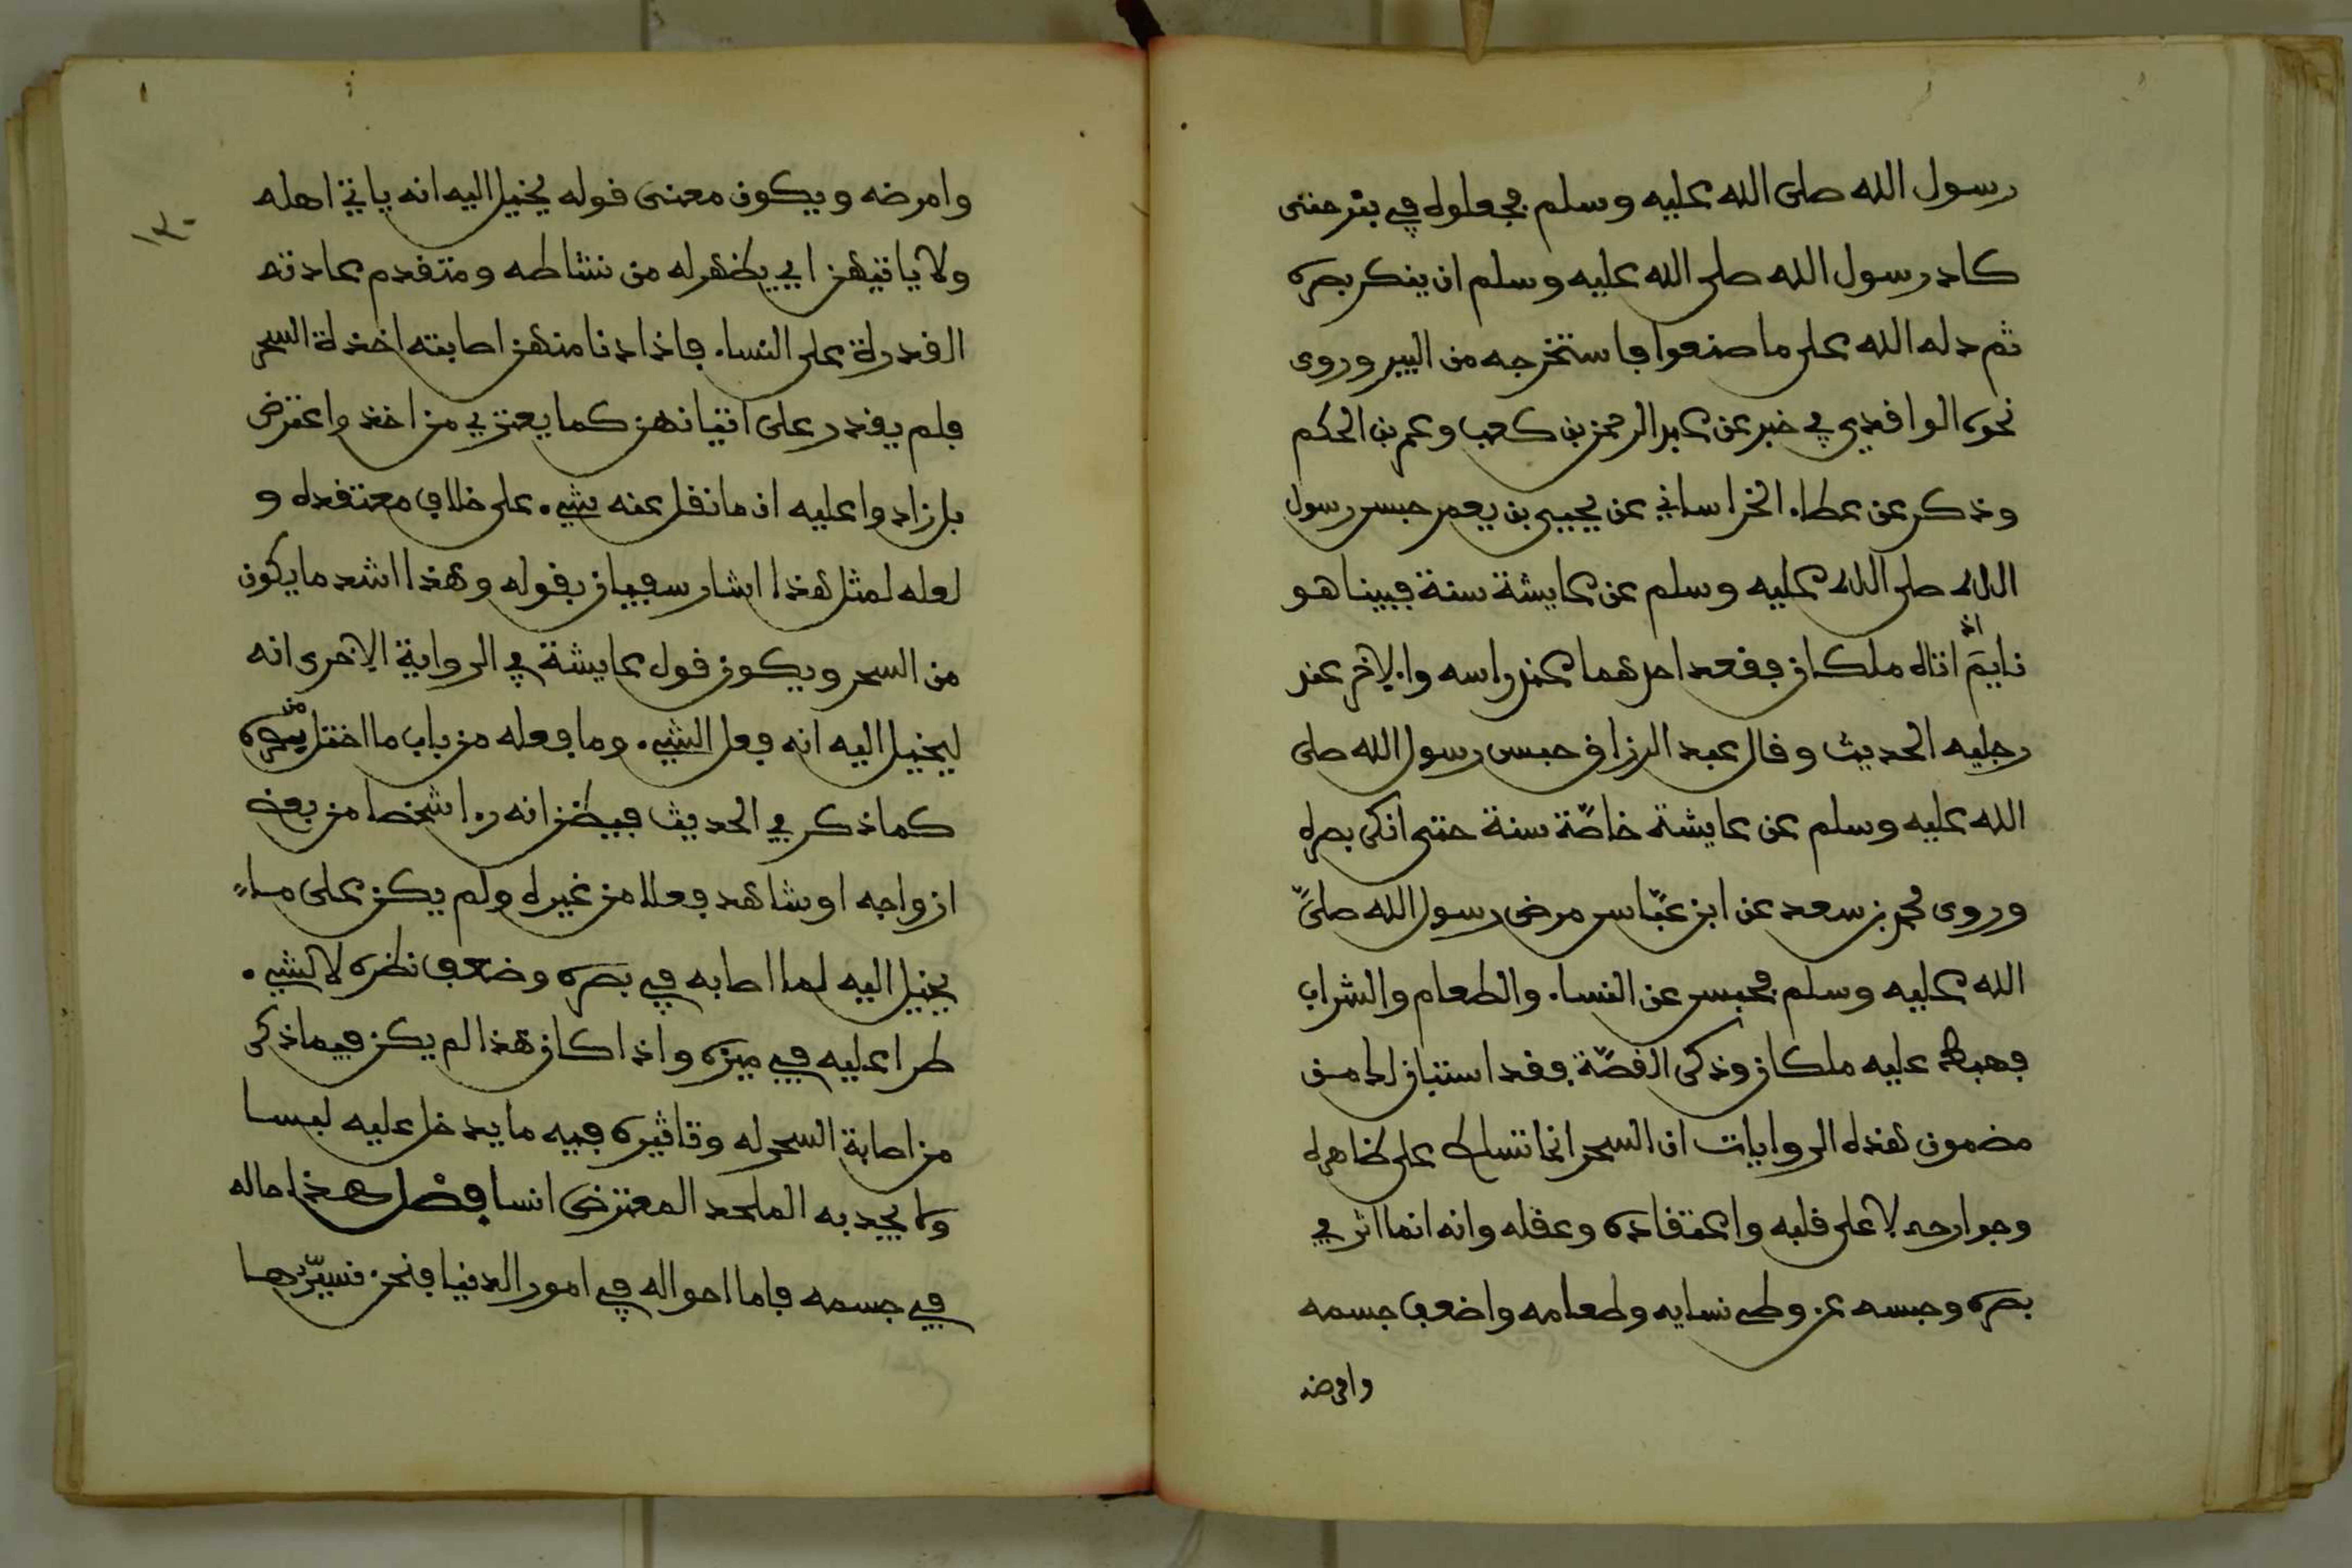 رسول الله صلى الله عليه وسلم فجعلوه في بئر حتى
كاد رسول الله صلى الله عليه وسلم ان ينكر بصره
ثم دله الله على ما صنعوا فاستخرجه من البير وروى
نحوه الواقدي في خبر عن عبد الرحمن بن كعب وعمر بن الحكم
وذكر عن عطاء الخراساني عن يحيى بن يعمر حبس رسول
الله صلى الله عليه وسلم عن عايشة سنة فبينا هو
نايم اذ اتاه ملكان فقعد احدهما عند راسه والاخر عند
رجليه الحديث وقال عبد الرزاق حبس رسول الله صلى
الله عليه وسلم عن عايشة خاصّة سنة حتى انكر بصره
وروى محمد بن سعد عن ابن عبّاس مرض رسول الله صلىّ
الله عليه وسلم فحبس عن النساء والطعام والشراب
فهبط عليه ملكان وذكر القصّة فقد استبان لك من
مضمون هذه الروايات ان السحر انما تسلط على ظاهره
وجوارحه لا على قلبه واعتقاده وعقله وانه انما اثر في
بصره وحبسه عن وطي نسايه وطعامه واضعف جسمه
وامرضه
١٣٠
وامرضه ويكون معنى قوله يخيل اليه انه ياتي اهله
ولا ياتيهن اي يظهر له من نشاطه ومتقدم عادته
القدرة على النساء فاذا دنا منهن اصابته اخذة السحر
فلم يقدر على اتيانهن كما يعتري من اخذ واعترض
بل زادوا عليه ان ما نقل عنه شيء على خلاف معتقده و
لعله لمثل هذا اشار سفيان بقوله وهذا اشد ما يكون
من السحر ويكون قول عايشة في الرواية الاخرى انه
ليخيل اليه انه فعل الشيء وما فعله من باب ما اختل من بصره
كما ذكر في الحديث فيظن انه راى شخصا من بعض
ازواجه او شاهد فعلا من غيره ولم يكن على ما
يخيل اليه لما اصابه في بصره وضعف نظره لا لشيء
طرا عليه في ميزه واذا كان هذا لم يكن فيما ذكر
من اصابة السحر له وتاثيره فيه ما يدخل عليه لبسا
ولا يجد به الملحد المعترض انسا فصل هذا حاله
في جسمه فاما احواله في امور الدنيا فنحن نسبّرها